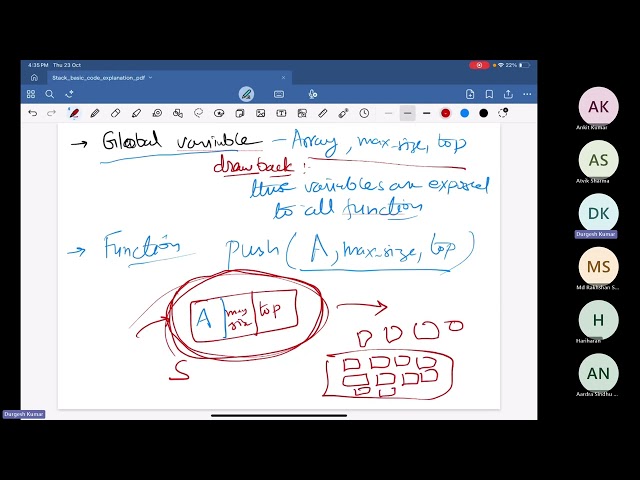 4:36 PM Thu 23 Oct
22%
Stack_basic_code_explanation_pdf
→ Global variable - Array, max-size, top
drawback:
these variables are exposed
to all function
→ Function push (A, max-size, top)
A max size top
S
AK
Ankit Kumar
AS
Atvik Sharma
DK
Durgesh Kumar
MS
Md Rakhshan S...
H
Hariharan
AN
Aardra Sindhu ...
Durgesh Kumar